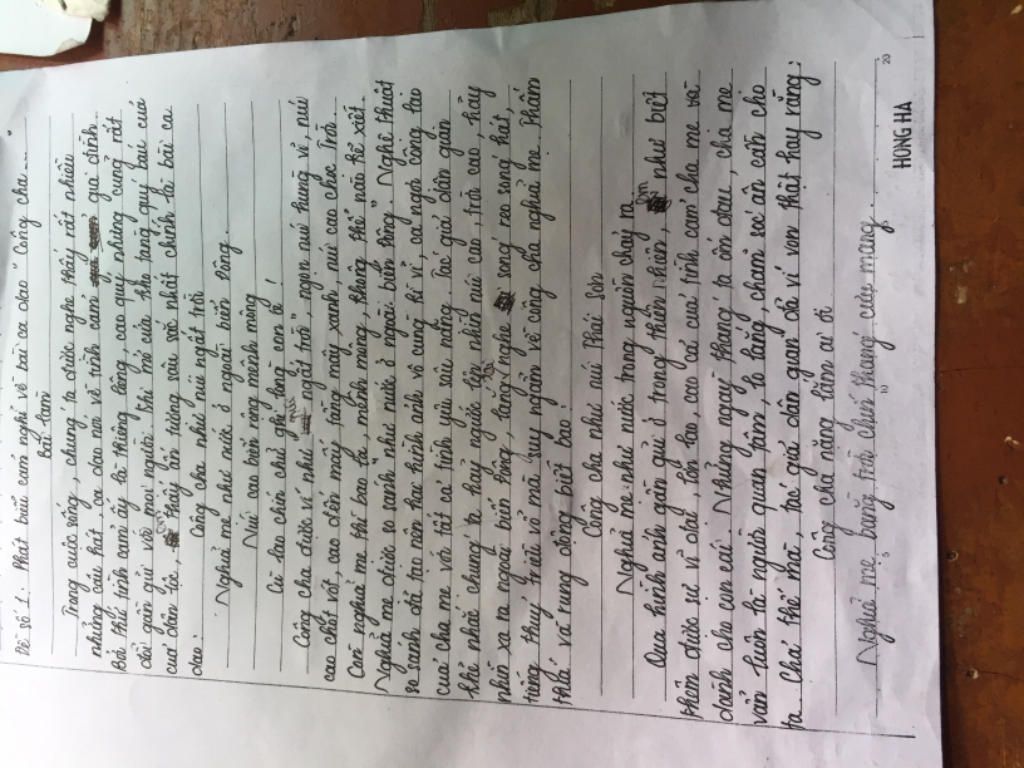 Đề số 1: Phát biểu cảm nghĩ về bài ca dao "Công cha..."
Bài làm
Trong cuộc sống, chúng ta được nghe thấy rất nhiều
những câu hát, ca dao nói về tình cảm gia đình.
Bởi thế tình cảm ấy là thiêng liêng, cao quý nhưng cũng rất
đỗi gần gũi với mọi người. Khi mở cửa kho tàng quý báu của
của dân tộc, con thấy ấn tượng sâu sắc nhất chính là bài ca
dao:
Công cha như núi ngất trời
Nghĩa mẹ như nước ở ngoài biển Đông.
Núi cao biển rộng mênh mông
Cù lao chín chữ ghi lòng con ơi!
Công cha được ví như "núi ngất trời", ngọn núi hùng vĩ, núi
cao chót vót, cao đến mấy tầng mây xanh, núi cao chọc trời.
Còn nghĩa mẹ thì bao la, mênh mông, không thể nào kể xiết.
Nghĩa mẹ được so sánh như nước ở ngoài biển Đông. Nghệ thuật
so sánh đã tạo nên hai hình ảnh vô cùng kì vĩ, ca ngợi công lao
của cha mẹ với tất cả tình yêu sâu nặng. Tác giả dân gian
khẽ nhắc chúng ta hãy ngước lên nhìn núi cao, trời cao, hãy
nhìn xa ra ngoài biển Đông, lắng nghe sóng reo sóng hát,
tiếng thủy triều vỗ mà suy ngẫm về công cha nghĩa mẹ. Thấm
thía và rung động biết bao!
Công cha như núi Thái Sơn
Nghĩa mẹ như nước trong nguồn chảy ra.
Qua hình ảnh gần gũi ở trong thiên nhiên, như biết
thêm được sự vĩ đại, lớn lao, cao cả của tình cảm cha mẹ về
dành cho con cái. Những ngày tháng ta ốm đau, cha mẹ
vẫn luôn là người quan tâm, lo lắng, chăm sóc ân cần cho
ta. Chả thế mà, tác giả dân gian đã ví von thật hay rằng:
Công cha nặng lắm ai ơi
Nghĩa mẹ bằng trời chín tháng cưu mang.
5 10 15 20
HONG HA